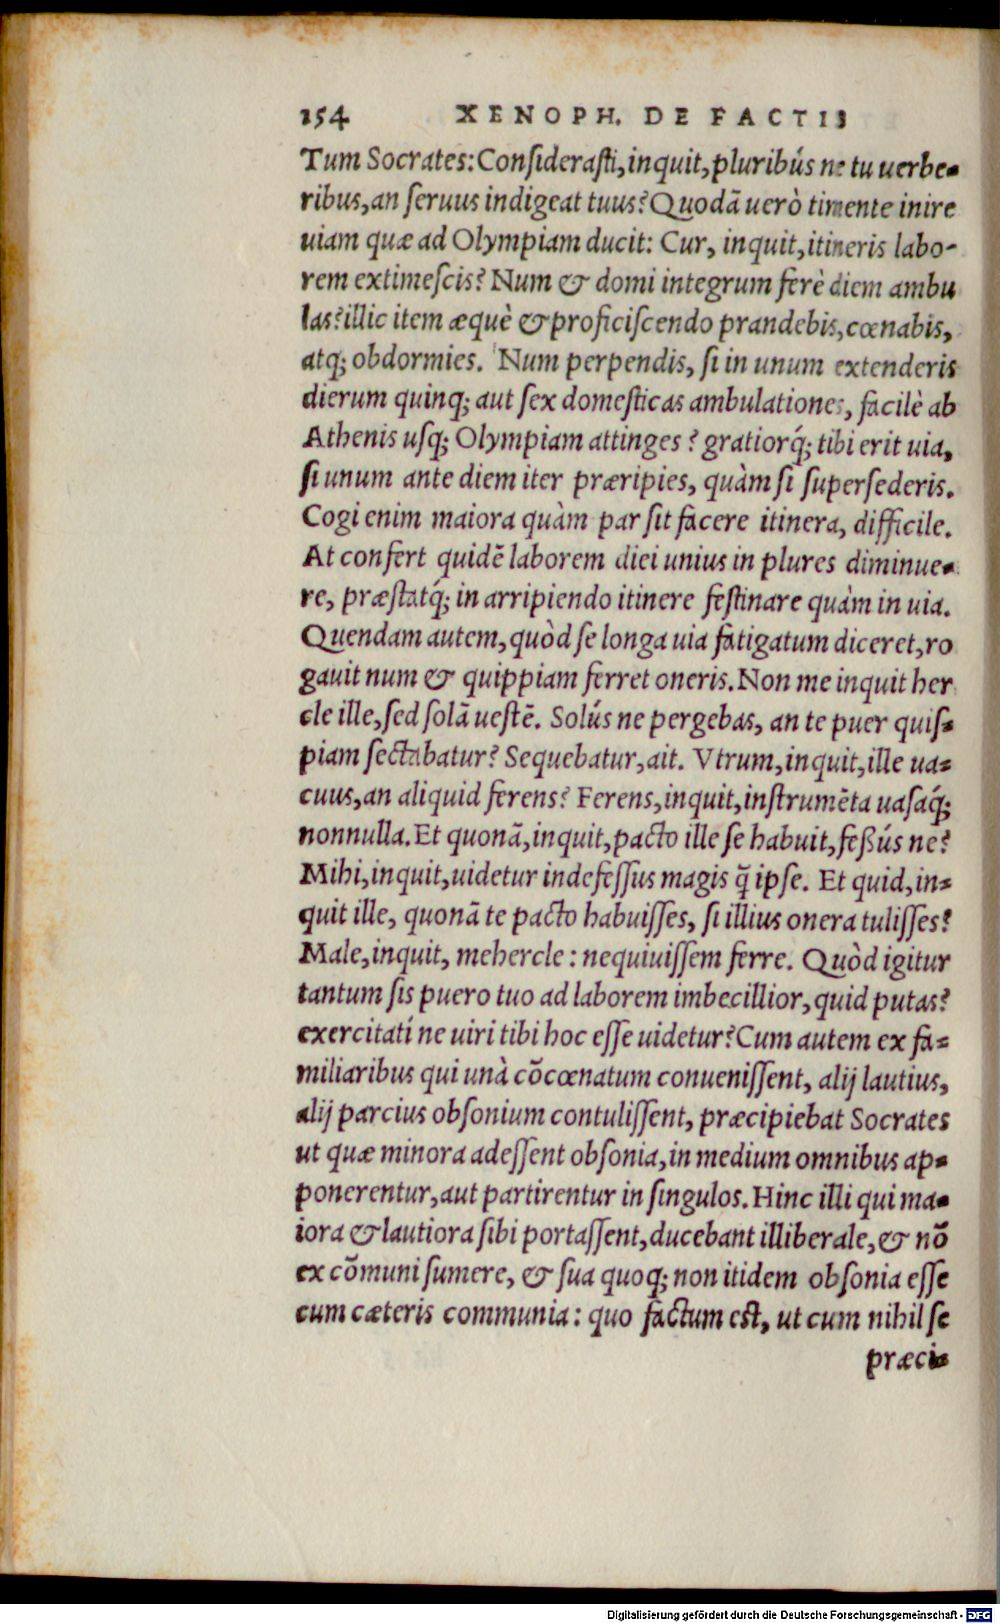 154 XENOPH. DE FACTIS
Tum Socrates: Considerasti, inquit, pluribús ne tu uerbe-
ribus, an seruus indigeat tuus? Quodã uerò timente inire
uiam quæ ad Olympiam ducit: Cur, inquit, itineris labo-
rem extimescis? Num & domi integrum ferè diem ambu
las? illic item æquè & proficiscendo prandebis, cœnabis,
atq; obdormies. Num perpendis, si in unum extenderis
dierum quinq; aut sex domesticas ambulationes, facilè ab
Athenis usq; Olympiam attinges? gratiorq́; tibi erit uia,
si unum ante diem iter præripies, quàm si supersederis.
Cogi enim maiora quàm par sit facere itinera, difficile.
At confert quidẽ laborem diei unius in plures diminue-
re, præstatq́; in arripiendo itinere festinare quàm in uia.
Quendam autem, quòd se longa uia fatigatum diceret, ro
gauit num & quippiam ferret oneris. Non me inquit her
cle ille, sed solã uestẽ. Solús ne pergebas, an te puer quis-
piam sectabatur? Sequebatur, ait. Vtrum, inquit, ille ua-
cuus, an aliquid ferens? Ferens, inquit, instrumẽta uasaq́;
nonnulla. Et quonã, inquit, pacto ille se habuit, feßús ne?
Mihi, inquit, uidetur indefessus magis q̃ ipse. Et quid, in-
quit ille, quonã te pacto habuisses, si illius onera tulisses?
Male, inquit, mehercle: nequiuissem ferre. Quòd igitur
tantum sis puero tuo ad laborem imbecillior, quid putas?
exercitatí ne uiri tibi hoc esse uidetur? Cum autem ex fa-
miliaribus qui unà cõcœnatum conuenissent, alij lautius,
alij parcius obsonium contulissent, præcipiebat Socrates
ut quæ minora adessent obsonia, in medium omnibus ap-
ponerentur, aut partirentur in singulos. Hinc illi qui ma-
iora & lautiora sibi portassent, ducebant illiberale, & nõ
ex cõmuni sumere, & sua quoq; non itidem obsonia esse
cum cæteris communia: quo factum est, ut cum nihil se
præci-
Digitalisierung gefördert durch die Deutsche Forschungsgemeinschaft - DFG